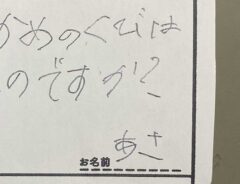 かめのくびは
のですか?
お名前 あさ